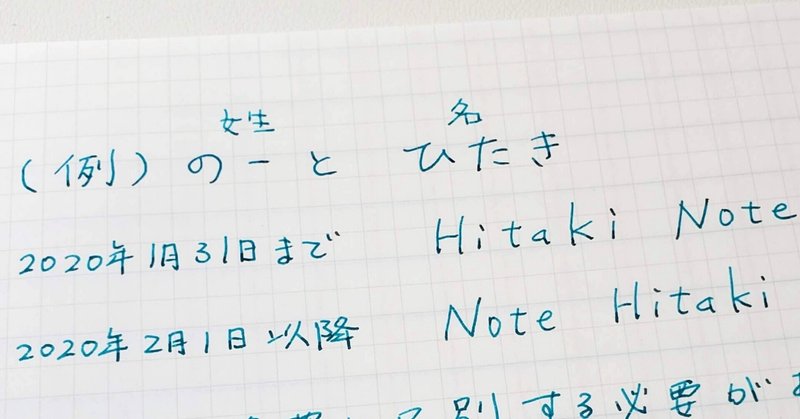 姓 名
(例) のーと ひたき
2020年1月31日まで Hitaki Note
2020年2月1日以降 Note Hitaki
別する必要があ